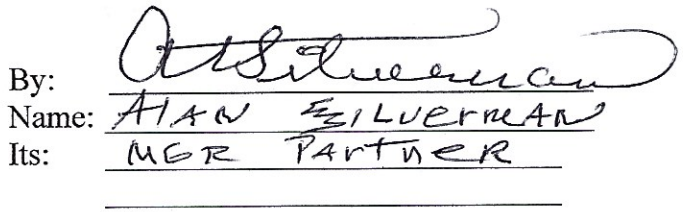 By: A Silverman
Name: Alan Silverman
Its: MGR Partner